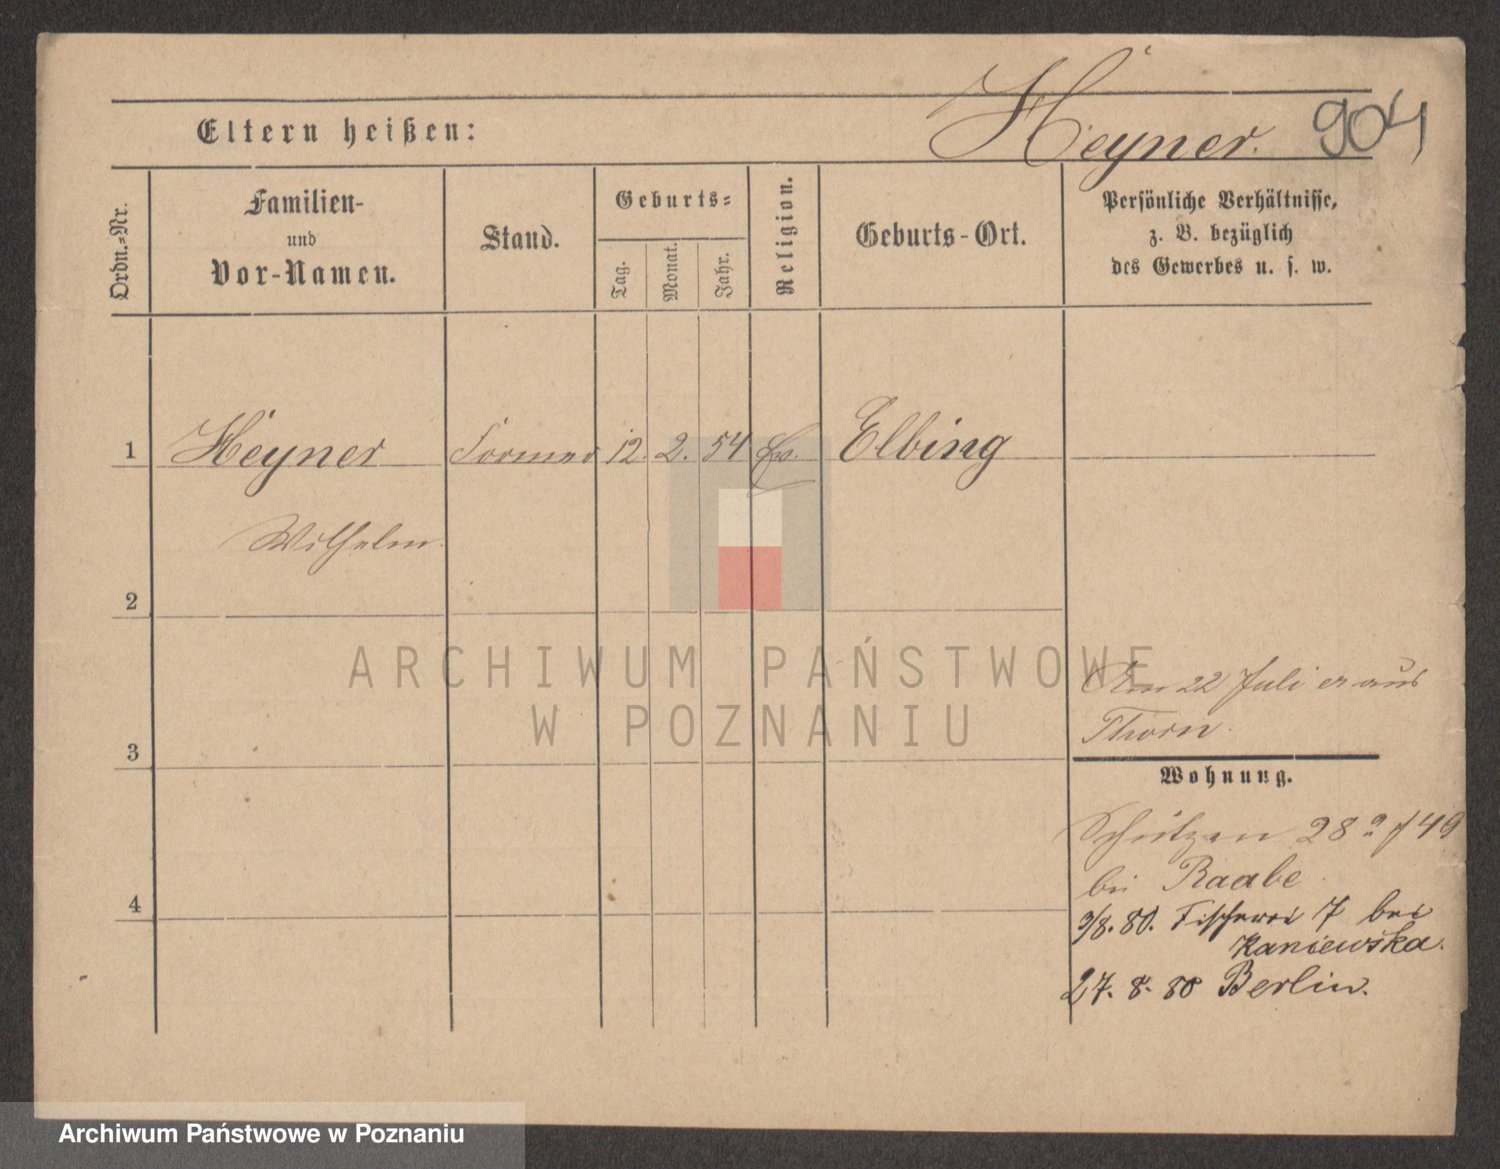 Eltern heißen:
Heyner. 904
Ordn.=Nr.
Familien-
und
Vor-Namen.
Stand.
Geburts=
Tag.
Monat.
Jahr.
Religion.
Geburts-Ort.
Persönliche Verhältnisse,
z. B. bezüglich
des Gewerbes u. s. w.
1 Heyner Former 12. 2. 54 Elbing
Wilhelm.
2
3
4
Am 22 Juli er aus
Thorn.
Wohnung.
Schützen 28a / 49
bei Raabe.
9/8. 80. Fischerei 7 bei
Kaniewska.
27. 8. 80 Berlin.
ARCHIWUM PAŃSTWOWE
W POZNANIU
Archiwum Państwowe w Poznaniu